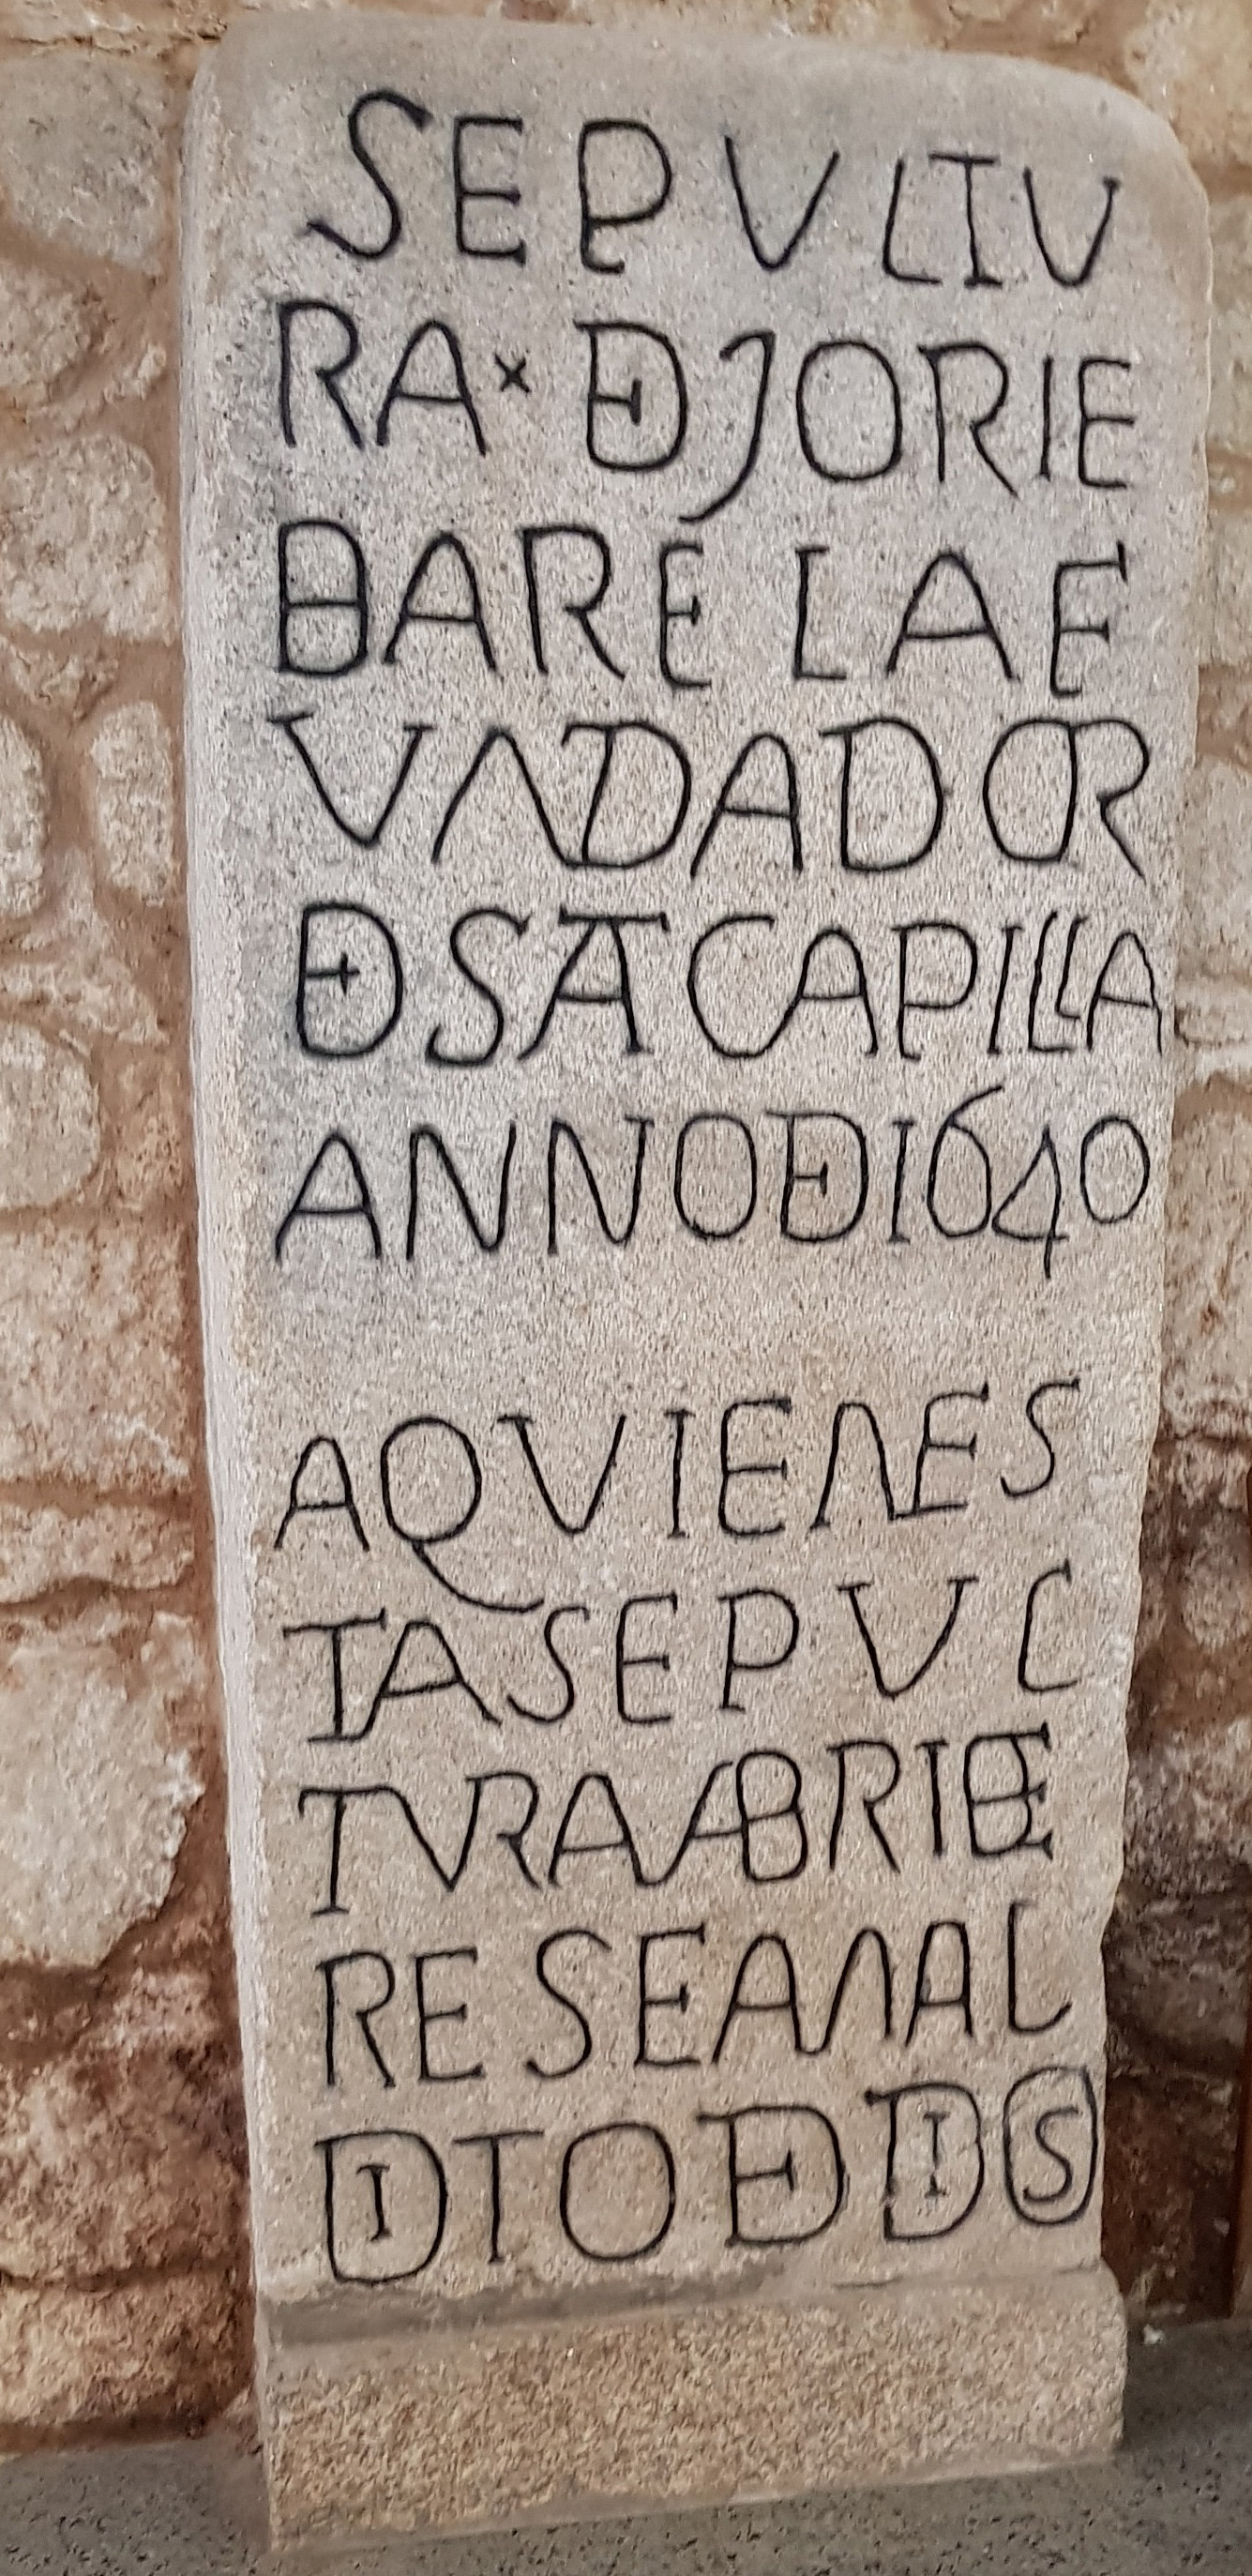 SEPVLTV
RA × DE JORIE
BARELA F
VNDADOR
DESTA CAPILLA
ANNO DE 1640
AQVIEN ES
TA SEPVL
TVRA ABRIE
RE SEA MAL
DITO DE DIOS